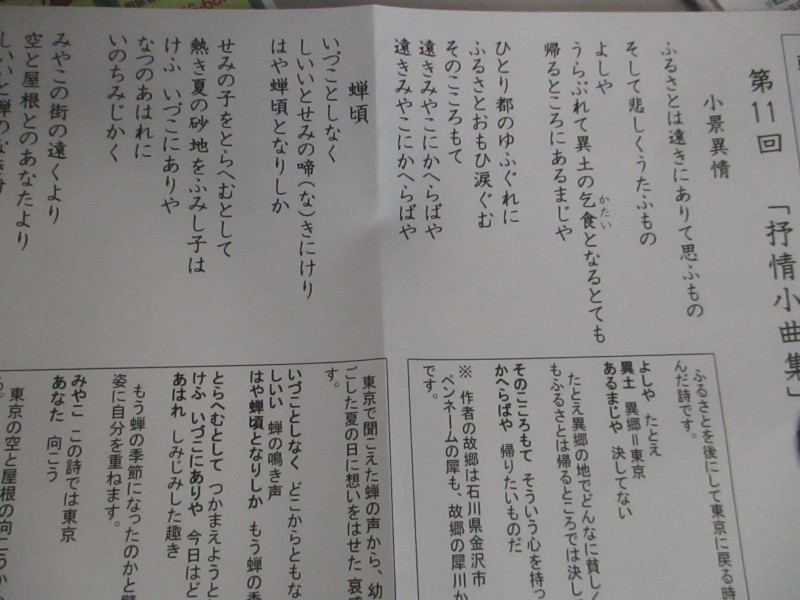 第11回 「抒情小曲集」
小景異情
ふるさとは遠きにありて思ふもの
そして悲しくうたふもの
よしや
うらぶれて異土の乞食となるとても
かたい
帰るところにあるまじや
ひとり都のゆふぐれに
ふるさとおもひ涙ぐむ
そのこころもて
遠きみやこにかへらばや
遠きみやこにかへらばや
蝉頃
いづことしなく
しいいとせみの啼(な)きにけり
はや蝉頃となりしか
せみの子をとらへむとして
熱き夏の砂地をふみし子は
けふ いづこにありや
なつのあはれに
いのちみじかく
みやこの街の遠くより
空と屋根とのあなたより
しいいと蝉のなきけ
ふるさとを後にして東京に戻る時
んだ詩です。
よしや たとえ
異土 異郷＝東京
あるまじや 決してない
たとえ異郷の地でどんなに貧しく
もふるさとは帰るところでは決して
そのこころもて そういう心を持っ
かへらばや 帰りたいものだ
※ 作者の故郷は石川県金沢市
ペンネームの犀も、故郷の犀川か
です。
東京で聞こえた蝉の声から、幼
ごした夏の日に想いをはせた 哀感
す。
いづことしなく どこからともな
しいい 蝉の鳴き声
はや蝉頃となりしか もう蝉の季
とらへむとして つかまえようと
けふ いづこにありや 今日はど
あはれ しみじみした趣き
もう蝉の季節になったのかと驚
姿に自分を重ねます。
みやこ この詩では東京
あなた 向こう
東京の空と屋根の向こうか